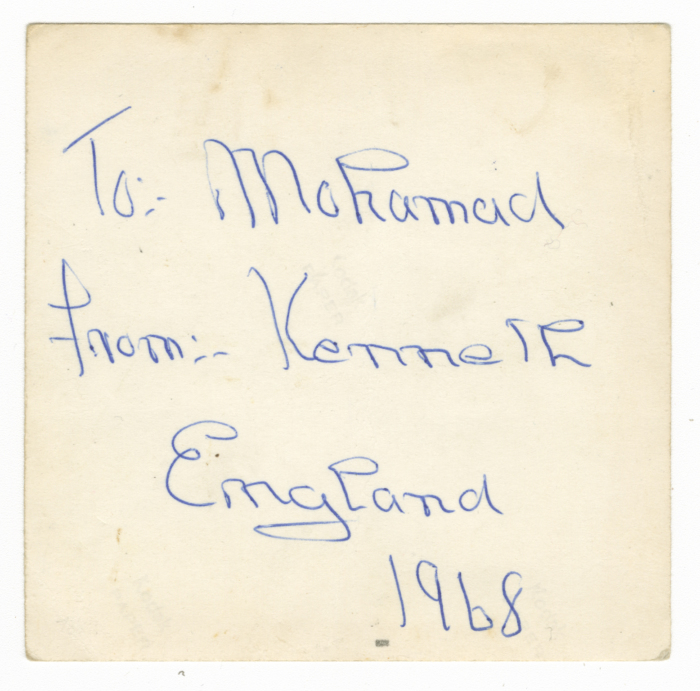 To:- Mohamad
From:- Kenneth
England
1968